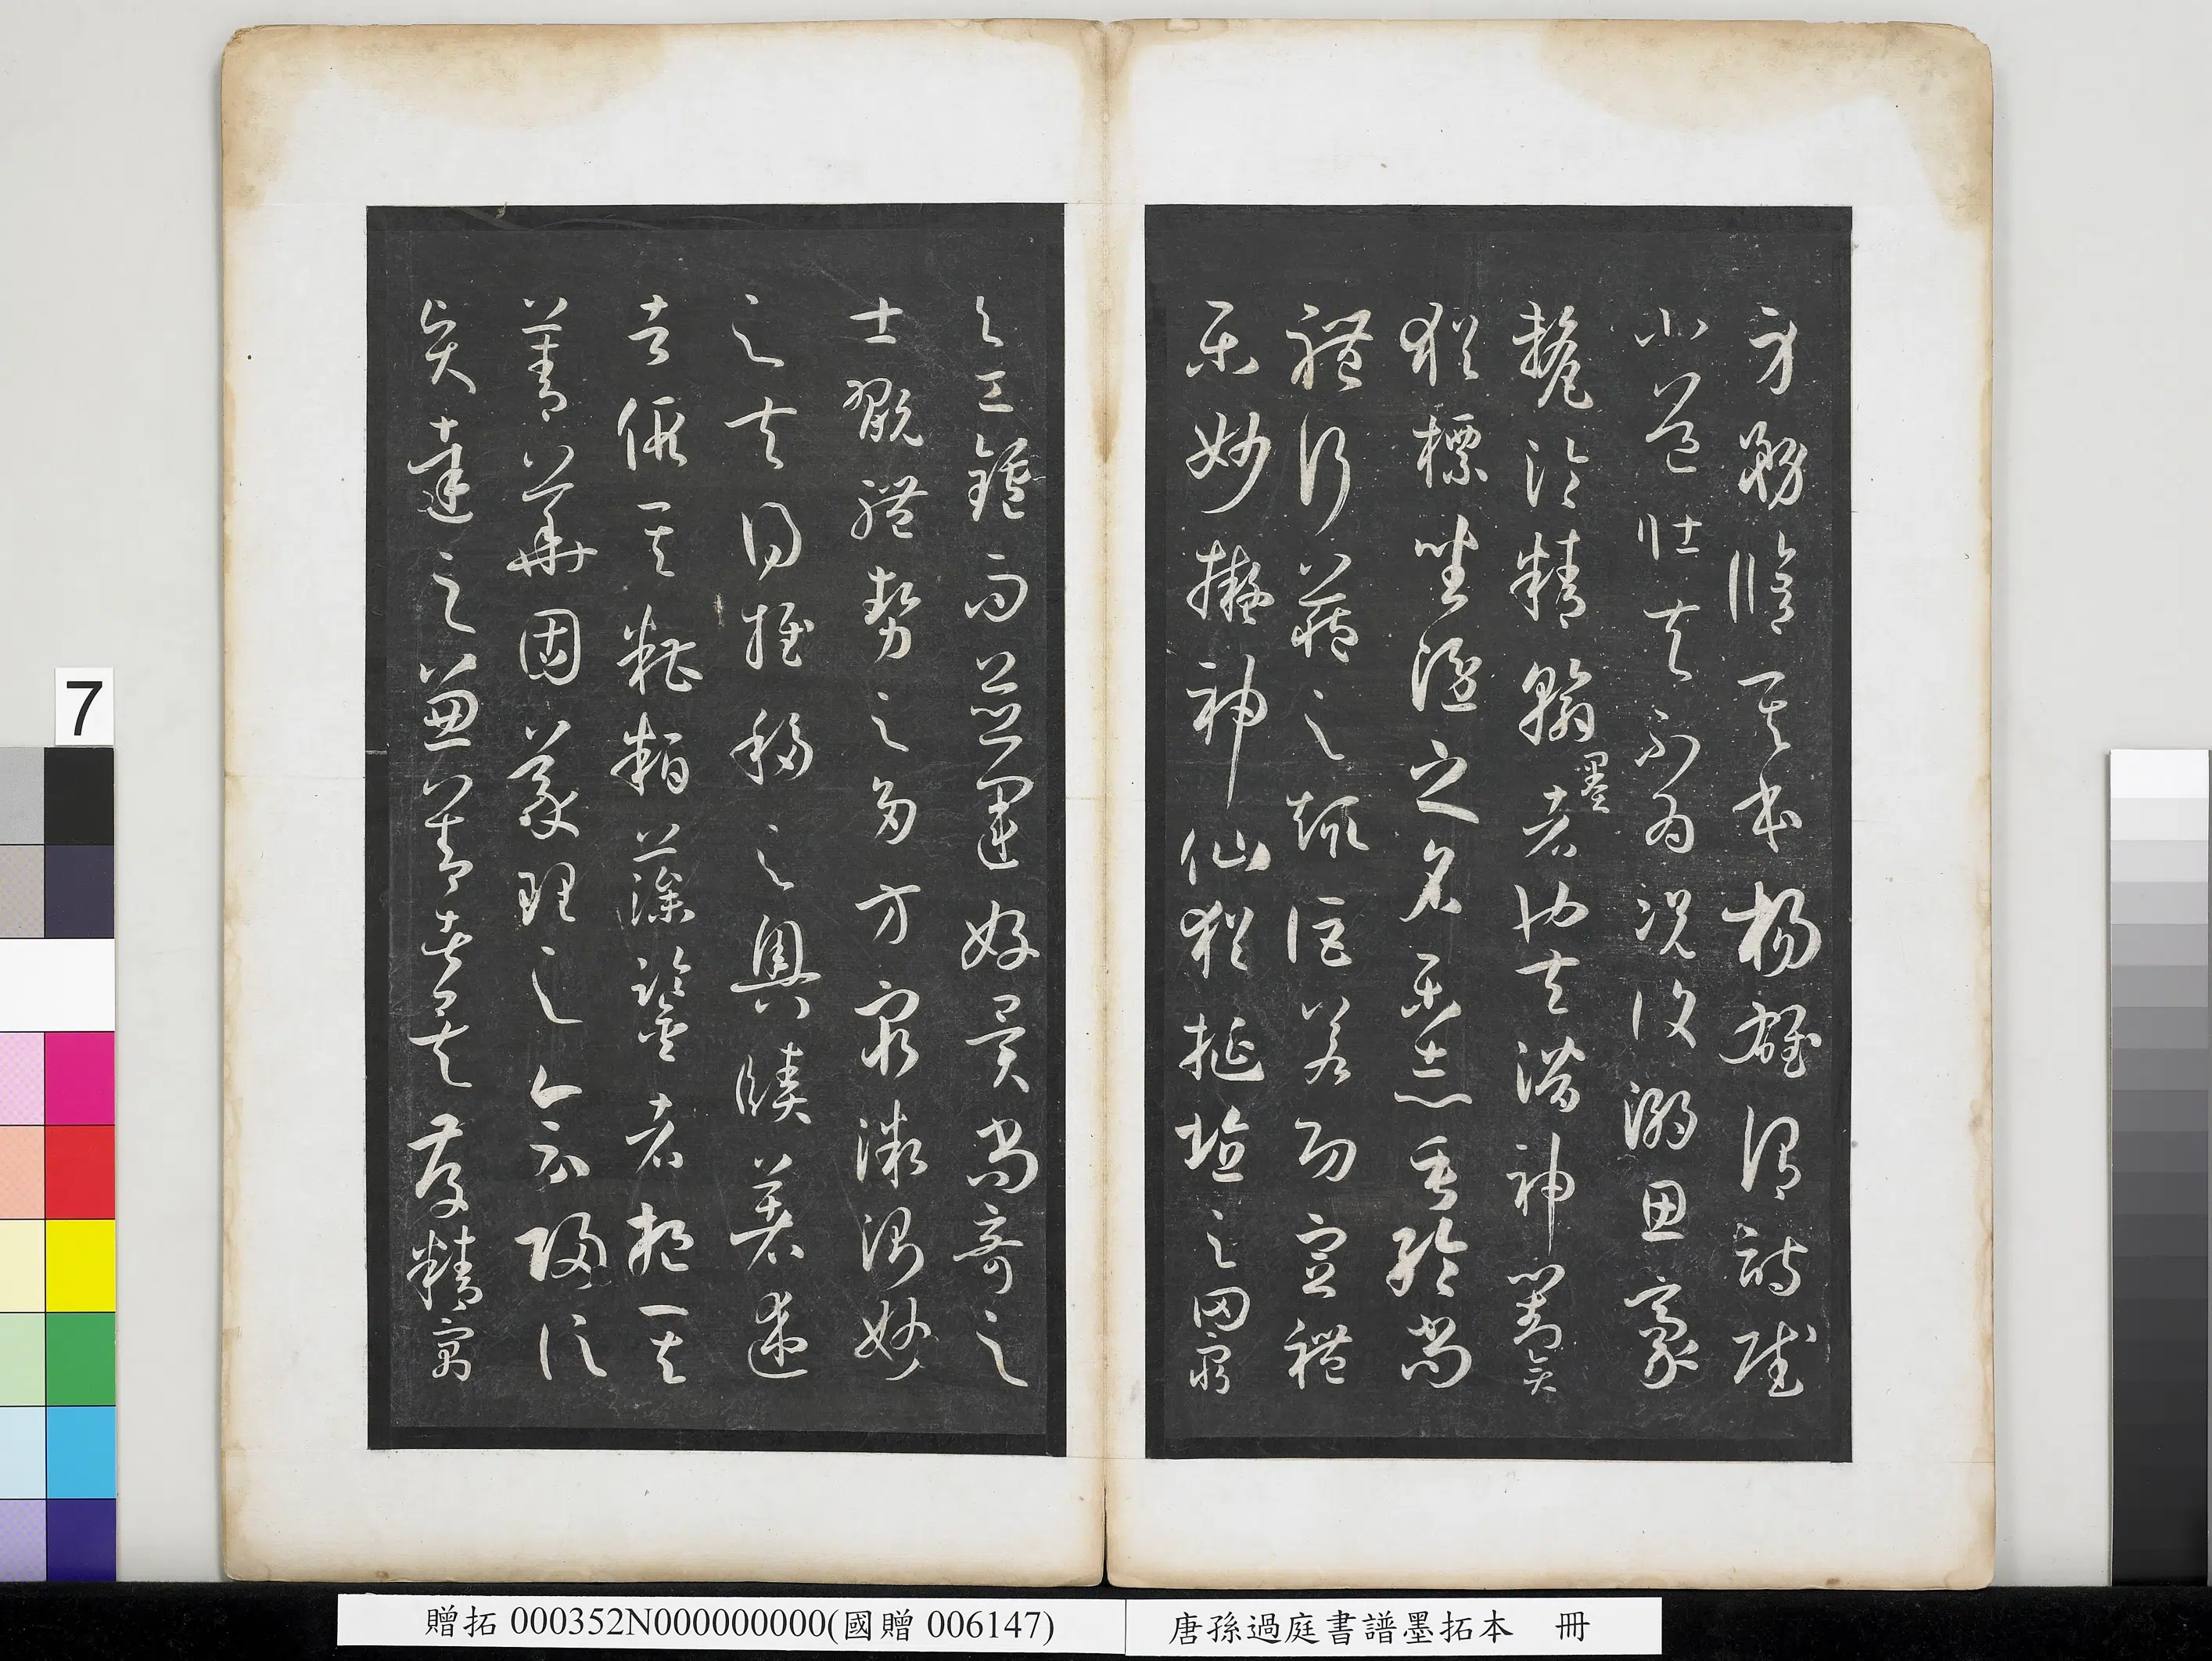 身務修其本楊雄謂詩賦
小道壯夫不為況復溺思豪
氂淪精翰墨者也夫潛神對弈
猶標坐隱之名樂志垂綸尚
體行藏之趣詎若功宣禮
樂妙擬神仙猶挻埴之罔窮
與工鑪而並運好異尚奇之
士翫體勢之多方窮微測妙
之夫得推移之奧賾著述
者假其糟粕藻鑒者挹其
菁華固義理之會歸信
賢達之兼善者矣存精寓
7
贈拓 000352N000000000(國贈 006147)
唐孫過庭書譜墨拓本 冊